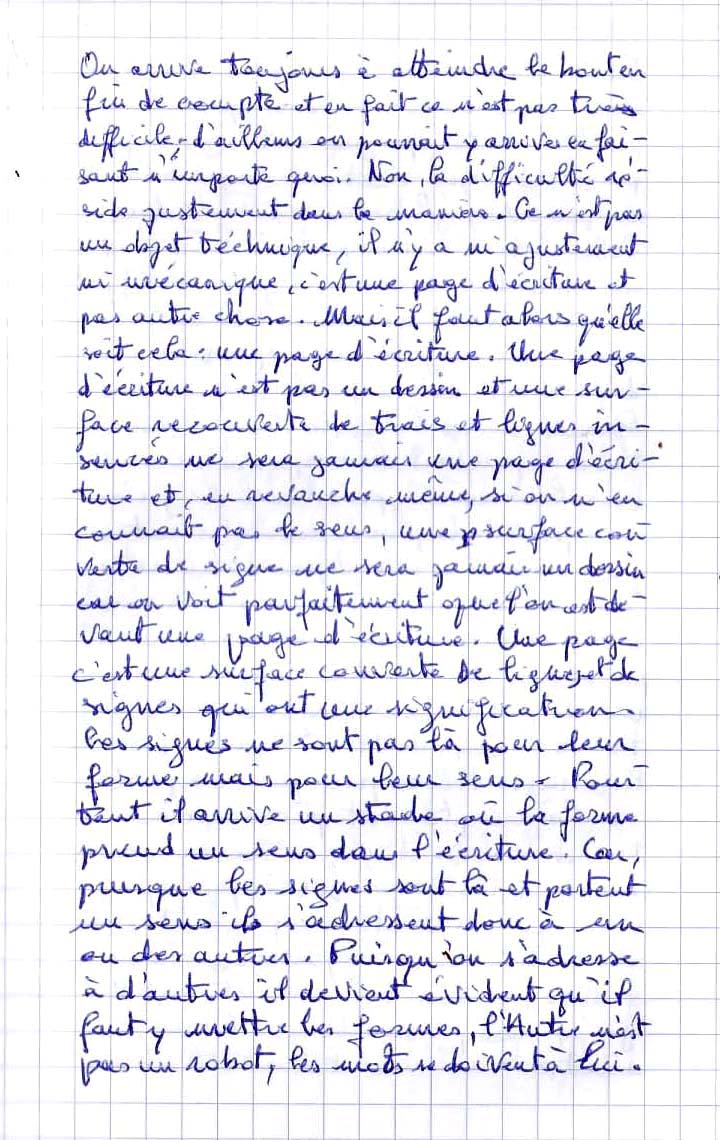 On arrive toujours à atteindre le bout en
fin de compte et en fait ce n'est pas très
difficile - d'ailleurs on pourrait y arriver en fai-
sant n'importe quoi. Non, la difficulté ré-
side justement dans la manière. Ce n'est pas
un objet téchnique, il n'y a ni ajustement
ni mécanique, c'est une page d'écriture et
pas autre chose. Mais il faut alors qu'elle
soit cela : une page d'écriture. Une page
d'écriture n'est pas un dessin et une sur-
face recouverte de trais et lignes in-
sensés ne sera jamais une page d'écri-
ture et, en revanche même, si on n'en
connait pas le sens, une surface cou-
verte de signe ne sera jamais un dessin
car on voit parfaitement que l'on est de-
vant une page d'écriture. Une page
c'est une surface couverte de lignes et de
signes qui ont une signification.
Les signes ne sont pas là pour leur
forme mais pour leur sens - Pour-
tant il arrive un stade où la forme
prend un sens dans l'écriture. Car,
puisque les signes sont là et portent
un sens ils s'adressent donc à un
ou des autres. Puisqu'on s'adresse
à d'autres il devient évident qu'il
faut y mettre les formes, l'Autre n'est
pas un robot, les mots se doivent à lui.